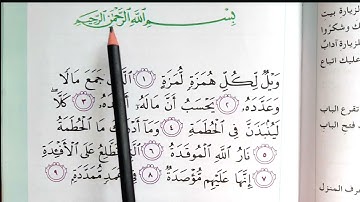 بِسْمِ ٱللَّهِ ٱلرَّحْمَٰنِ ٱلرَّحِيمِ
وَيْلٌ لِّكُلِّ هُمَزَةٍ لُّمَزَةٍ ١ جَمَعَ مَالًا
وَعَدَّدَهُۥ ٢ يَحْسَبُ أَنَّ مَالَهُۥٓ ٣ كَلَّا ۖ
لَيُنۢبَذَنَّ فِى ٱلْحُطَمَةِ ٤ وَمَآ مَا ٱلْحُطَمَةُ
٥ نَارُ ٱللَّهِ ٱلْمُوقَدَةُ ٦ تَطَّلِعُ عَلَى ٱلْأَفْـِٔدَةِ
٧ إِنَّهَا عَلَيْهِم مُّؤْصَدَةٌ ٨ فِى عَمَدٍ مُّمَدَّدَةٍۭ ٩
لزيارة بيت
وشكروا
زيارة آداب
عليك اتباع
تقرع الباب
فتح الباب
عرف المنزل